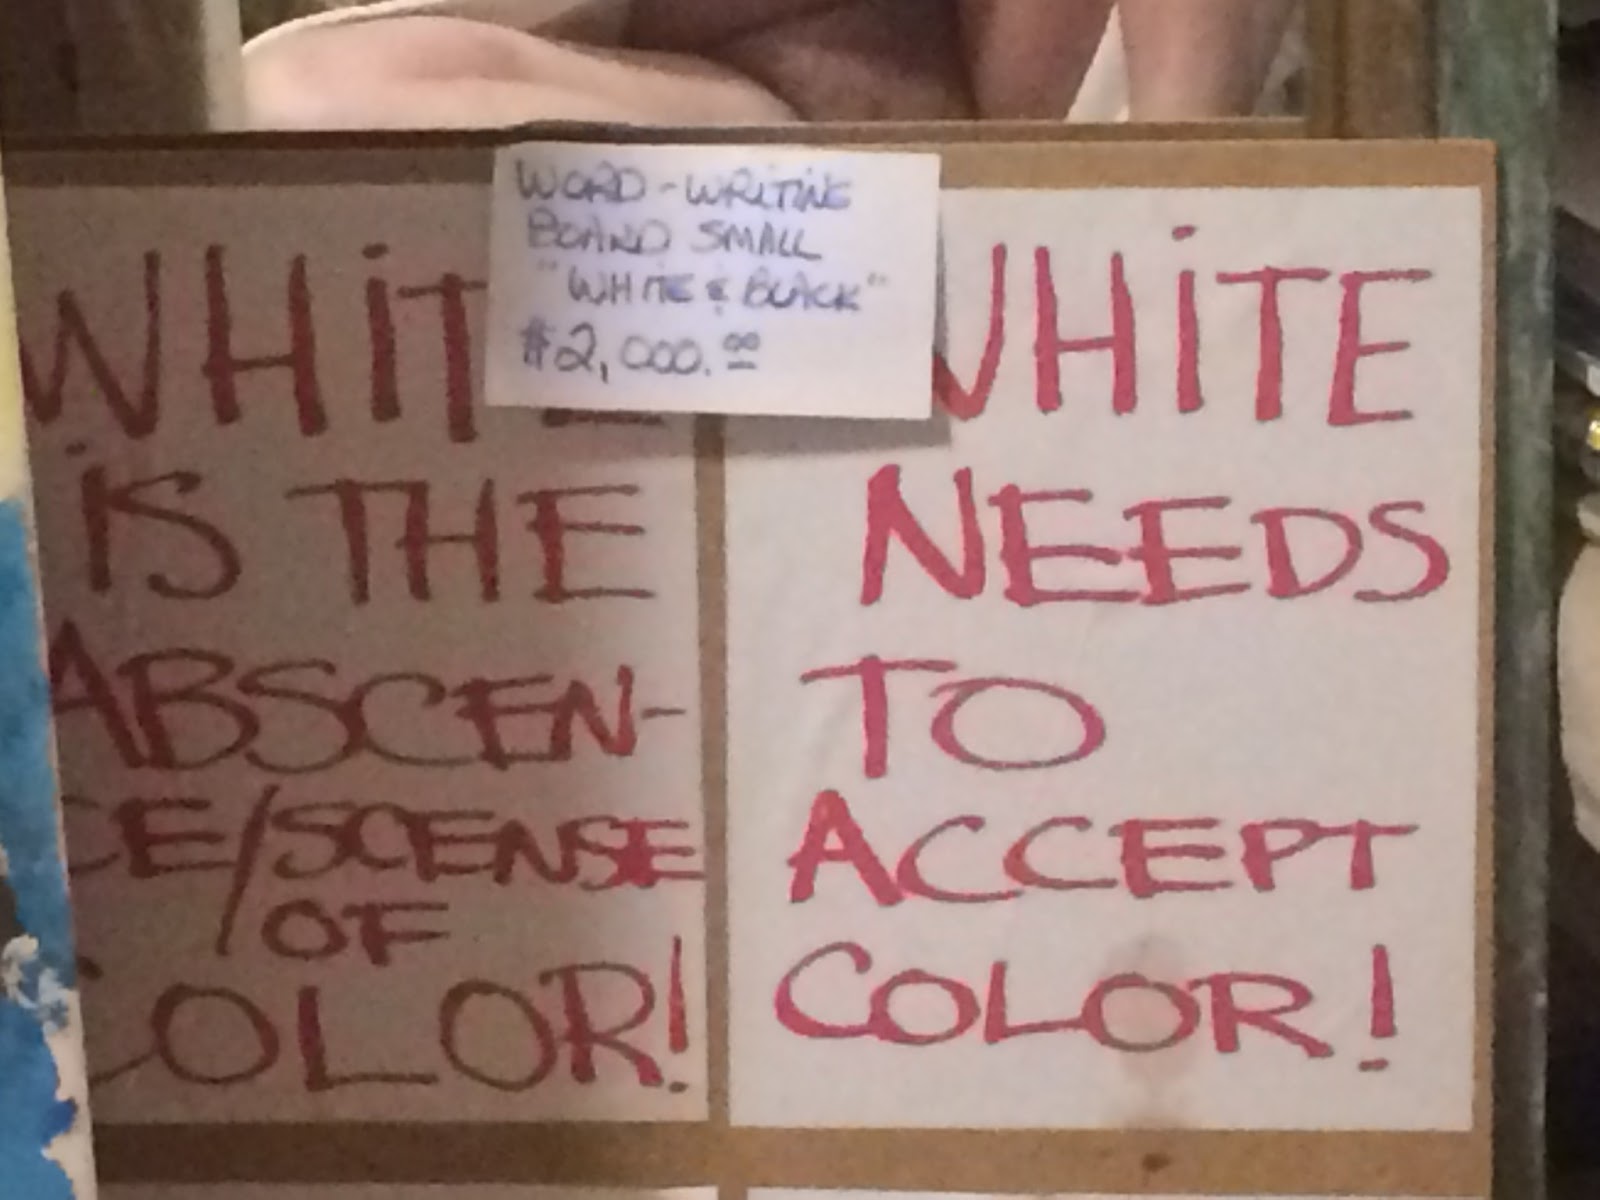 WORD-WRITING
BOARD SMALL
"WHITE & BLACK"
$2,000.00
WHITE
iS THE
ABSCEN-
CE/SCENSE
OF
COLOR!
WHiTE
NEEDS
TO
ACCEPT
COLOR!